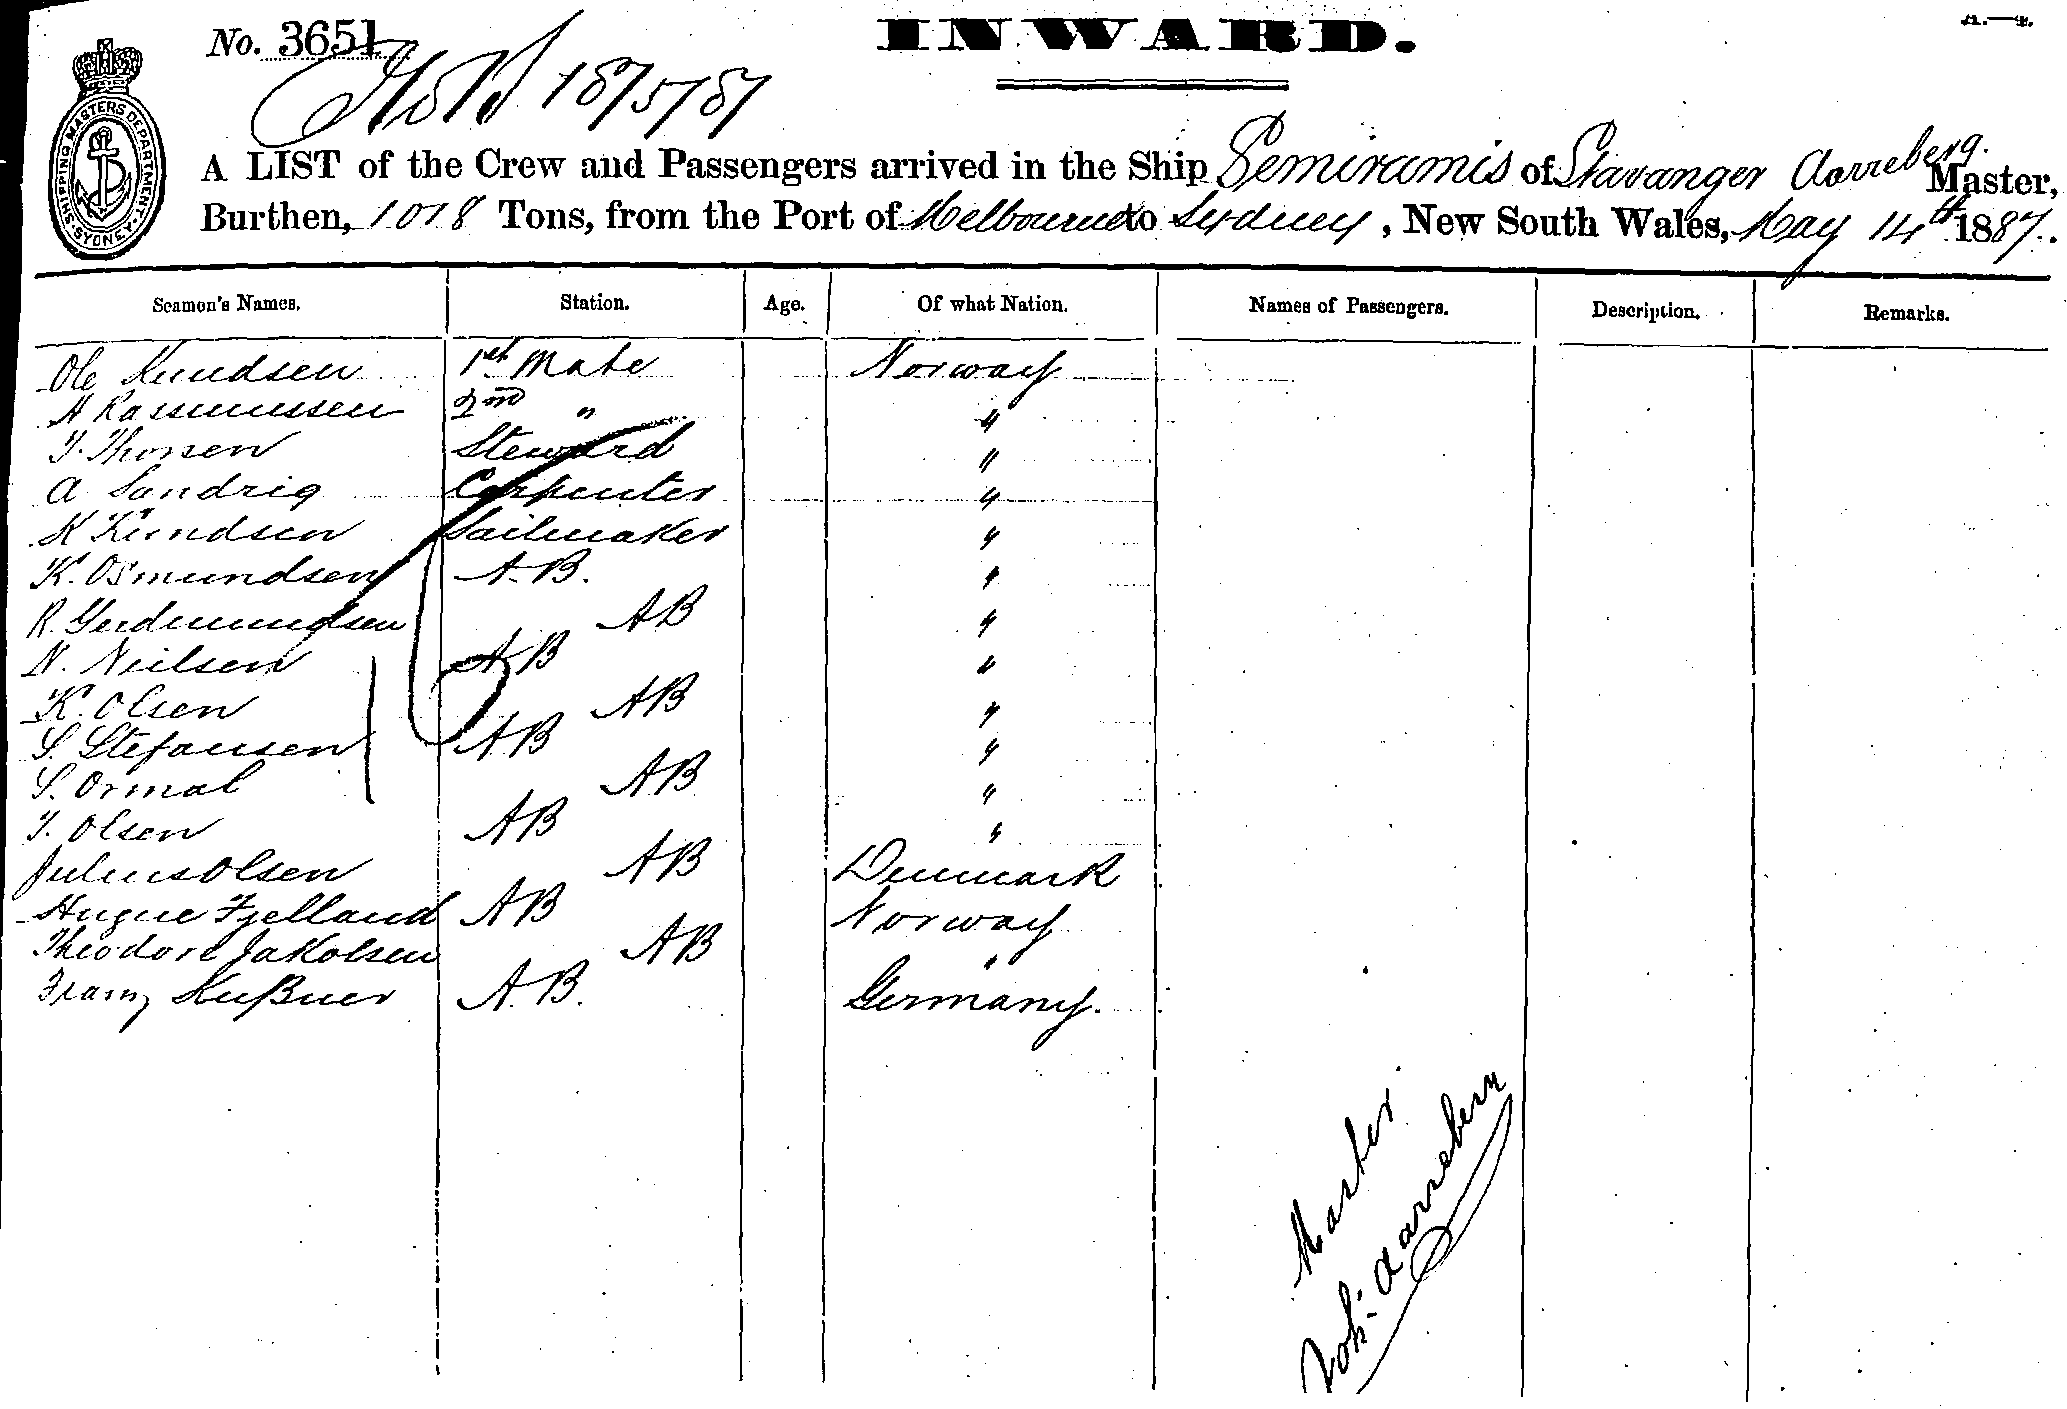 INWARD.
No. 3651
18/5/87
SHIPPING MASTERS DEPARTMENT SYDNEY
A LIST of the Crew and Passengers arrived in the Ship Semiramis of Stavanger Aarreberg Master,
Burthen, 1018 Tons, from the Port of Melbourne to Sydney, New South Wales, May 14th 1887.
Seamen's Names. Station. Age. Of what Nation. Names of Passengers. Description. Remarks.
Ole Knudsen 1st Mate Norway
A Rasmussen 2nd " "
T. Thorsen Steward "
A Sandrig Carpenter "
K Knudsen Sailmaker "
K. Osmundsen A.B. "
R. Gudmundsen AB "
N. Neilsen AB "
K. Olsen AB "
S. Stefansen AB "
S. Ormal AB "
T. Olsen AB "
Julius Olsen AB Denmark
Hugue Fjelland AB Norway
Theodore Jakobsen AB "
Franz Kußner A.B. Germany.
Master
Joh. Aarreberg